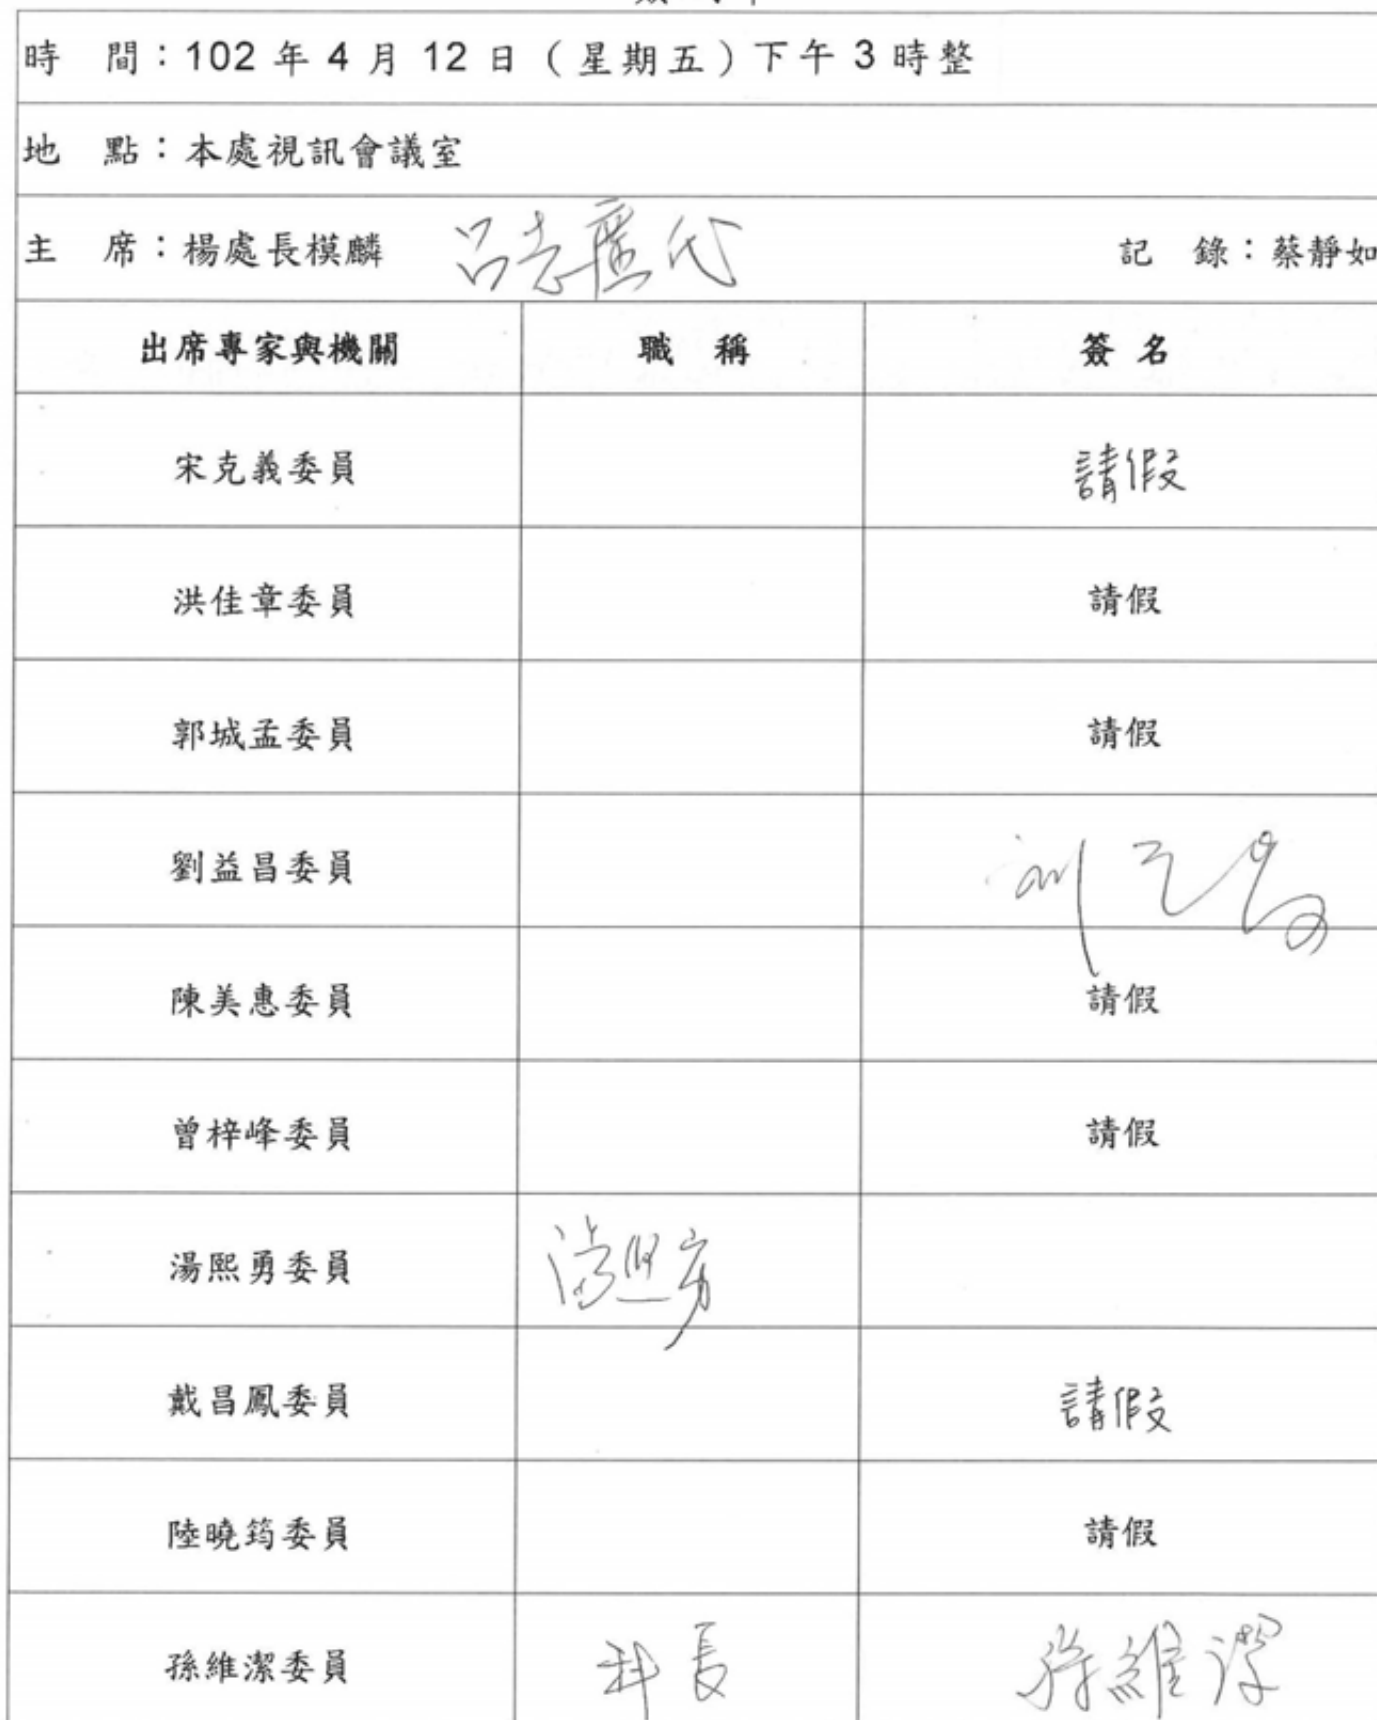 時　間：102 年 4 月 12 日（星期五）下午 3 時整
地　點：本處視訊會議室
主　席：楊處長模麟 呂志廣代 記　錄：蔡靜如
出席專家與機關 職　稱 簽 名
宋克義委員 請假
洪佳章委員 請假
郭城孟委員 請假
劉益昌委員 劉益昌
陳美惠委員 請假
曾梓峰委員 請假
湯熙勇委員 湯熙勇
戴昌鳳委員 請假
陸曉筠委員 請假
孫維潔委員 科長 孫維潔